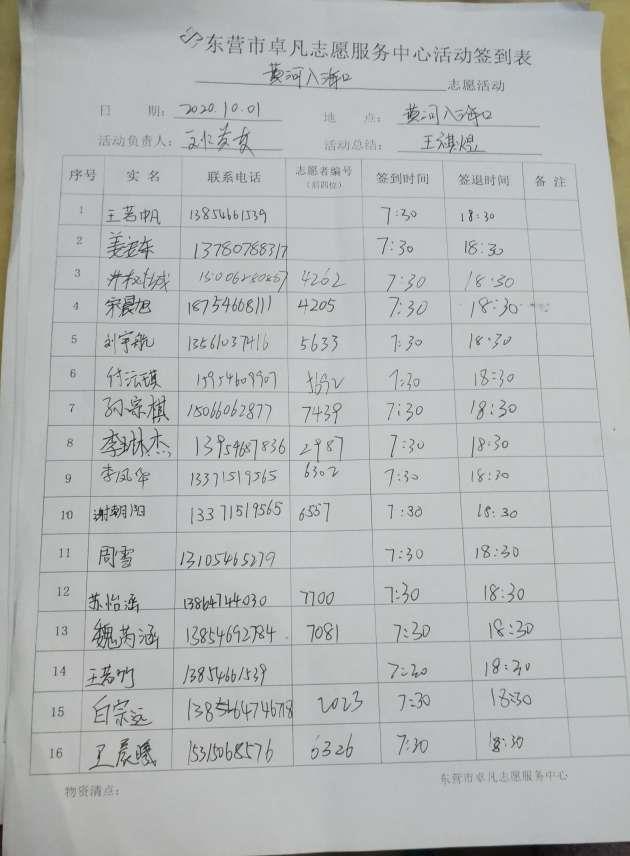 东营市卓凡志愿服务中心活动签到表
黄河入海口 志愿活动
日 期: 2020.10.01 地 点: 黄河入海口
活动负责人: 活动总结: 王祺煜
序号 实名 联系电话 志愿者编号(后四位) 签到时间 签退时间 备注
1 王若帆 13854661539 7:30 18:30
2 13780788317 7:30 18:30
3 15006280867 4262 7:30 18:30
4 宋晨旭 18754668111 4205 7:30 18:30
5 刘宇航 13561037416 5633 7:30 18:30
6 付沄琪 15954609907 7:30 18:30
7 孙宗棋 15066062877 7439 7:30 18:30
8 李琳杰 13954687836 2987 7:30 18:30
9 李凤华 13371519565 6302 7:30 18:30
10 谢朝阳 13371519565 6557 7:30 18:30
11 周雪 13105465279 7:30 18:30
12 苏怡涵 13864744030 7700 7:30 18:30
13 魏芮涵 13854692784 7081 7:30 18:30
14 王若竹 13854661539 7:30 18:30
15 白宗远 2023 7:30 18:30
16 王晨曦 15315068576 6326 7:30 18:30
物资清点: 东营市卓凡志愿服务中心